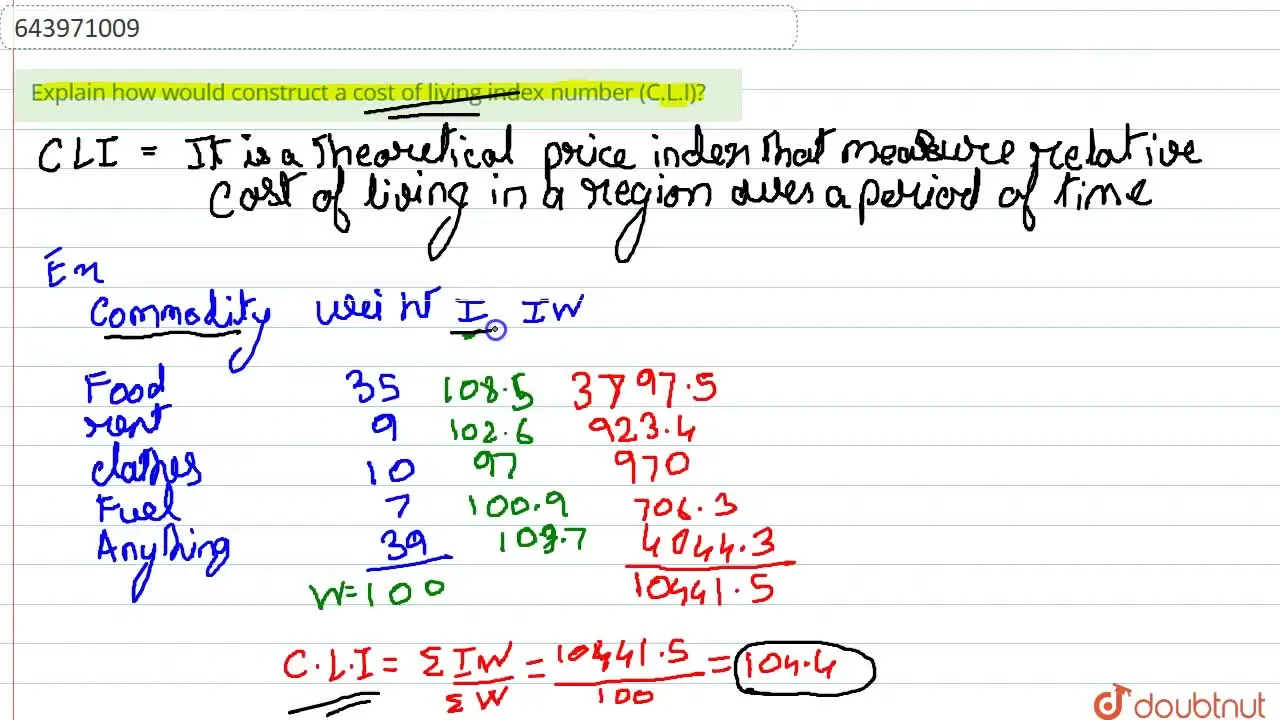 643971009
Explain how would construct a cost of living index number (C.L.I)?
CLI = It is a theoretical price index that measure relative
cost of living in a region over a period of time
Ex
Commodity Wei W I IW
Food 35 108.5 3797.5
rent 9 102.6 923.4
clothes 10 97 970
Fuel 7 100.9 706.3
Anything 39 103.7 4044.3
W=100 10441.5
C.L.I = Σ IW / Σ W = 10441.5 / 100 = 104.4
doubtnut